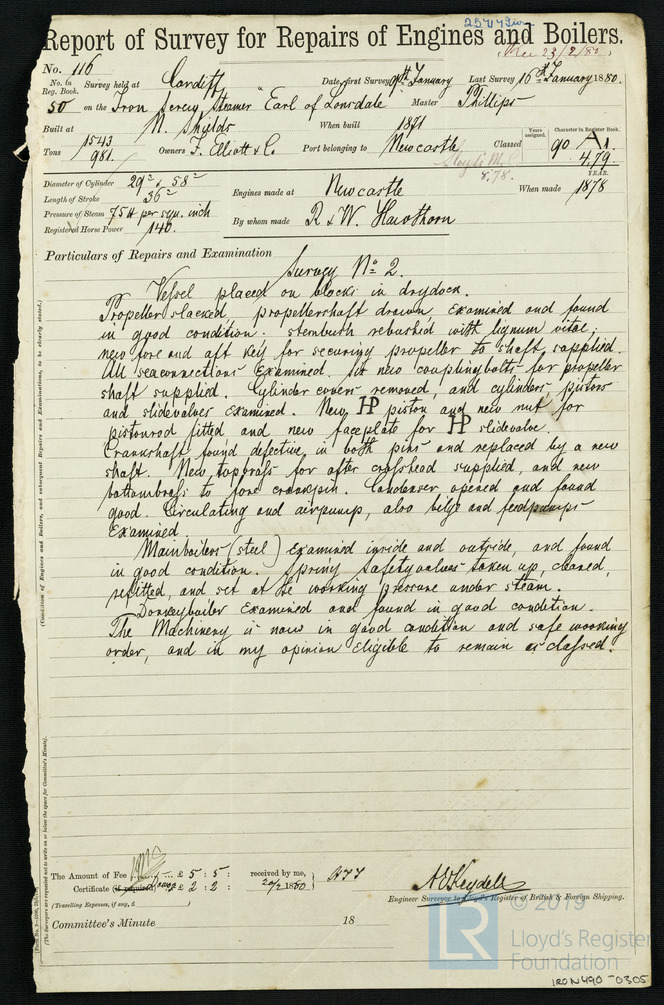 Report of Survey for Repairs of Engines and Boilers.
Rec 23/2/80
No. 116
No. in Reg. Book. Survey held at Cardiff Date, first Survey 9th January Last Survey 16th January 1880.
50 on the Iron Screw Steamer "Earl of Lonsdale" Master Phillips
Built at N. Shields When built 1871
Tons 1543 981 Owners F. Elliott & Co. Port belonging to Newcastle Classed
Years assigned. 90 Character in Register Book. A1. 4.79.
Lloyd's M.C. 8.78.
Diameter of Cylinder 29" & 58"
Length of Stroke 36"
Pressure of Steam 75 lb per squ. inch
Registered Horse Power 140.
Engines made at Newcastle YEAR. When made 1878
By whom made R & W. Hawthorn
Particulars of Repairs and Examination
Survey No 2.
Vessel placed on blocks in drydock.
Propeller slacked, propellershaft drawn, examined and found
in good condition. sternbush rebushed with lignum vitae;
new fore and aft key for securing propeller to shaft supplied.
All seaconnections examined. Six new couplingbolts for propeller
shaft supplied. Cylinder covers removed, and cylinders, pistons
and slidevalves examined. New HP piston and new nut for
pistonrod fitted and new faceplate for HP slidevalve.
Crankshaft found defective in both pins and replaced by a new
shaft. New topbrass for after crosshead supplied, and new
bottombrass to fore crankpin. Condenser opened and found
good. Circulating and airpump, also bilge and feedpumps
Examined.
Mainboilers (steel) examined inside and outside, and found
in good condition. Spring safetyvalves taken up, cleaned,
refitted, and set at the working pressure under steam.
Donkeyboiler examined and found in good condition.
The Machinery is now in good condition and safe working
order, and in my opinion eligible to remain as classed.
(Condition of Engines and Boilers, and subsequent Repairs and Examinations, to be clearly stated.)
(The Surveyors are requested not to write on or below the space for Committee's Minute).
The Amount of Fee £ 5 : 5 : received by me,
Certificate (if required) £ 2 : 2 : 20/2 1880
(Travelling Expenses, if any, £ )
Engineer Surveyor to Lloyd's Register of British & Foreign Shipping.
Committee's Minute 18
© 2019
LR
Lloyd's Register
Foundation
IRON490-0305